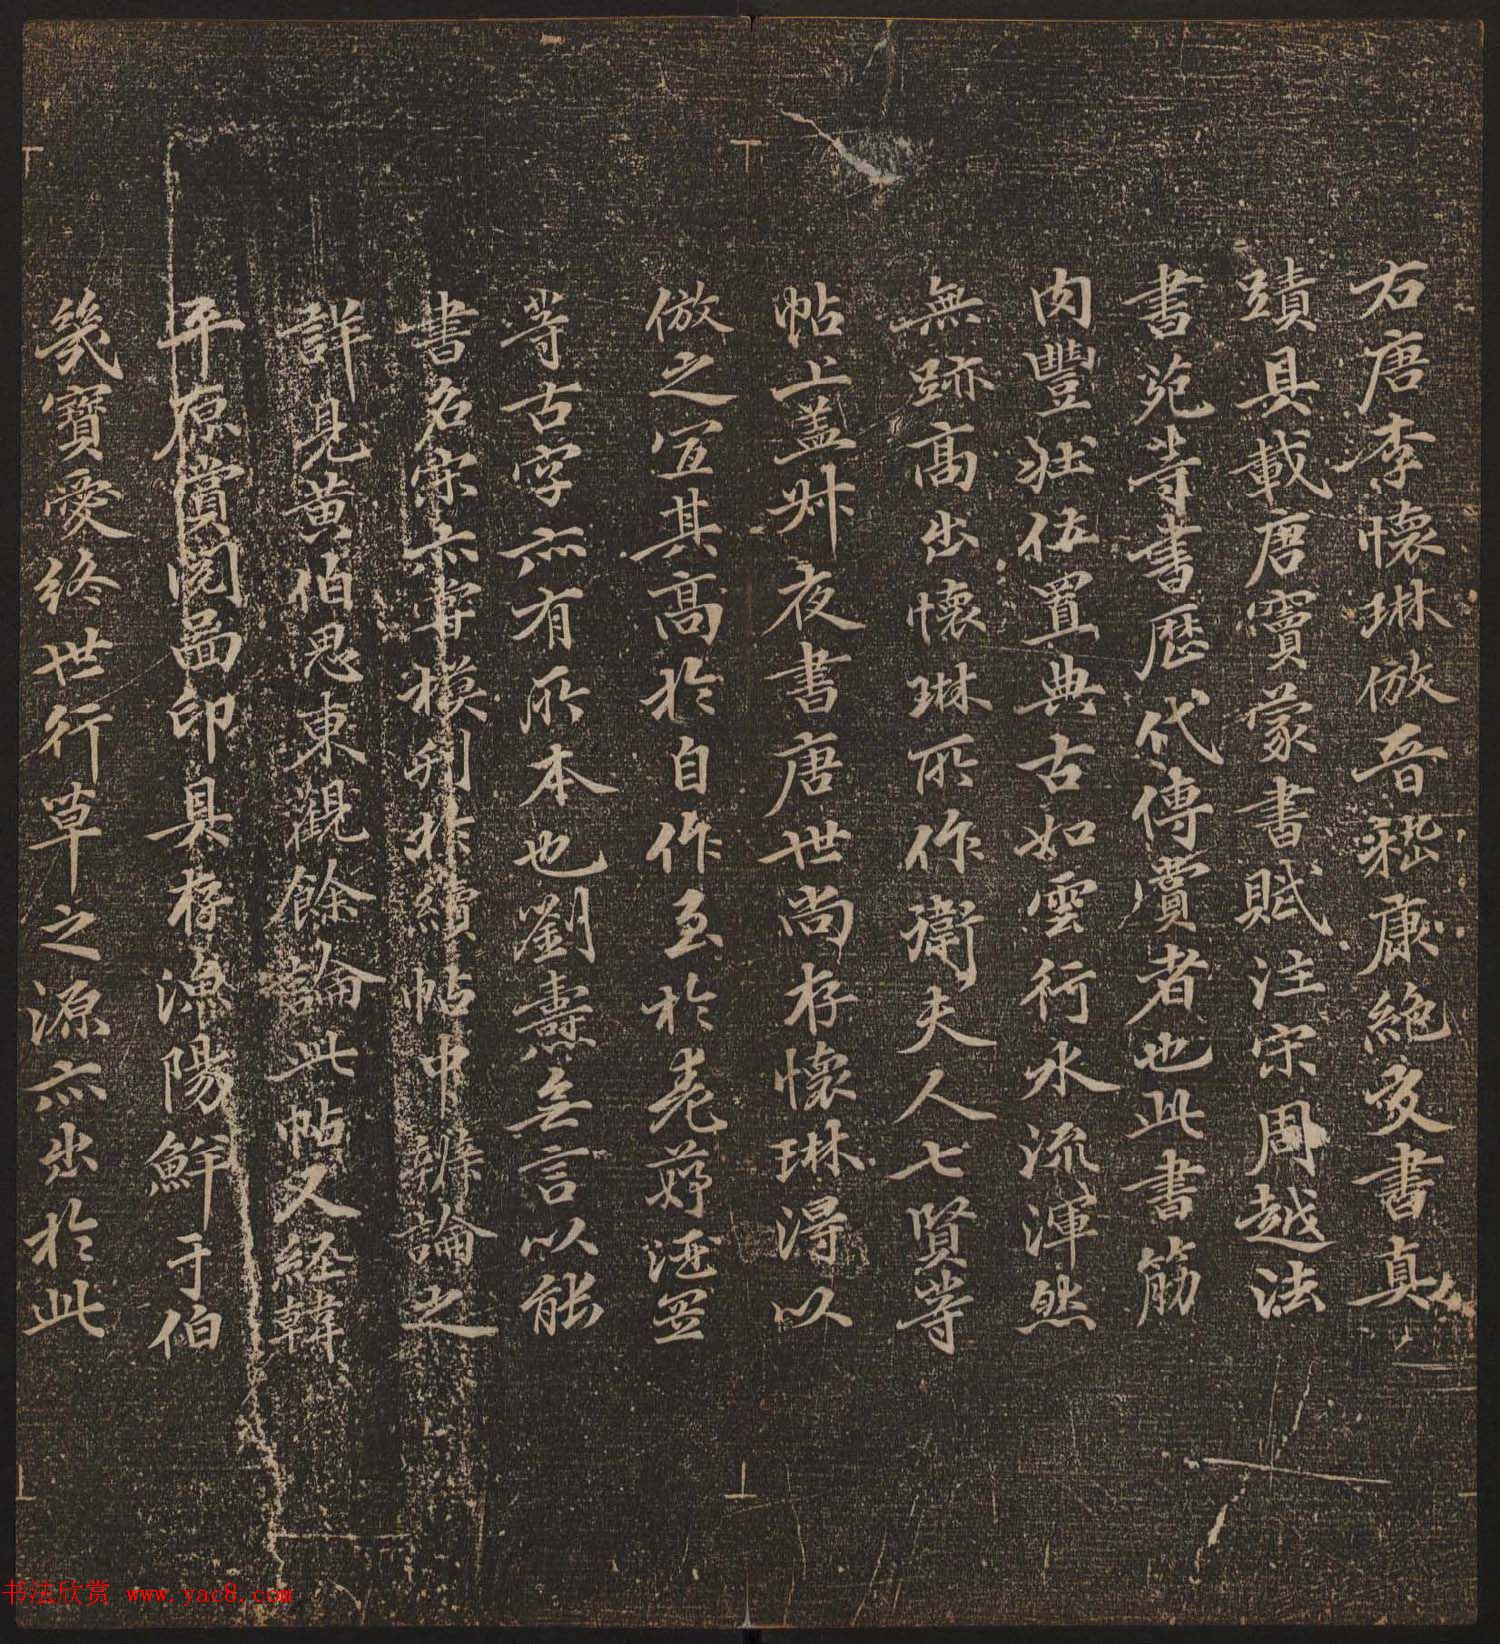 右唐李懷琳倣晉嵇康絕交書真
蹟具載唐竇蒙書賦注宋周越法
書苑等書歷代傳賞者也此書筋
肉豐壯位置典古如雲行水流渾然
無跡高出懷琳所作衛夫人七賢等
帖上盖叔夜書唐世尚存懷琳得以
倣之宜其高於自作至於
等古字亦有所本也劉燾無言以能
書名家亦嘗模刊於續帖中辨論之
詳見黃伯思東觀餘論此帖又經韓
平原賞閱啚印具存漁陽鮮于伯
幾寶愛終世行草之源亦出於此
书法欣赏 www.yac8.com